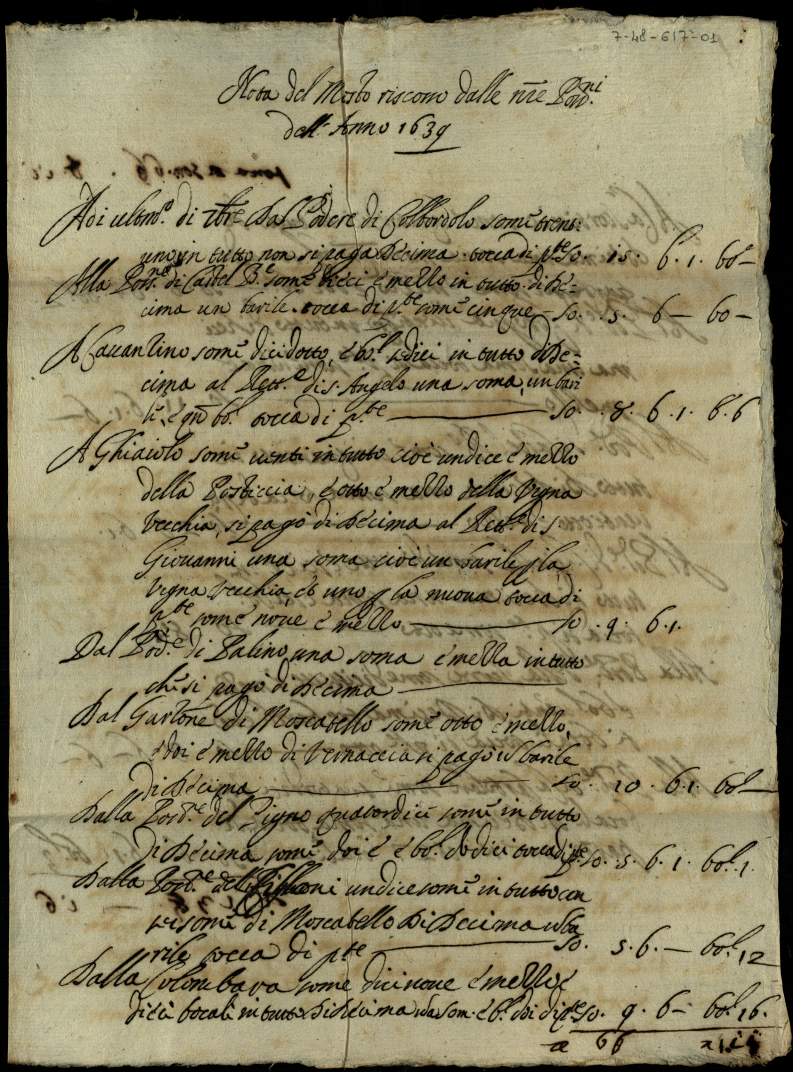 7-48-617-01
Nota del Mosto riscosso dalle nre Poss.ni
dell'Anno 1639
Adi ultimo di 7bre Dal Podere di Colbordolo some trent:
uno in tutto non si paga Decima. tocca di pte so. 15. b. 1. bol —
Alla Poss.ne di Castel B.e some dieci e mezzo in tutto. di De:
cima un barile. tocca di pte some cinque — so. 5. b — bo —
A Cavantino some dicidotto, e bol. sedici in tutto di De=
cima al Rett.e di s. Angelo una soma, un bari
le, e bo. tocca di pte — so. 8. b. 1. b. 6
A Ghiaiolo some venti in tutto cioè undice e mezzo
della Posticcia, e otto e mezzo della Vigna
Vecchia, si pagò di Decima al Rett.e di S.
Giovanni una soma cioè un barile p la
Vigna Vecchia, et uno p la nuova tocca di
pte some nove e mezzo — so. 9. b. 1.
Dal Pod.e di Palino, una soma e mezza in tutto
che si pagò di Decima —
Dal Gartone di Moscatello some otto e mezzo,
e doi e mezzo di Vernaccia si pagò 1 barile
di Decima — so. 10. b. 1. bol —
Dalla Poss.ne del Pigno quatordici some in tutto
di Decima some doi e bol. dodici tocca di pte so. 5. b. 1. bol. 1.
Dalla Poss.ne del undice some in tutto con
some di Moscatello Di Decima 1 ba
rile tocca di pte — so. 5. b. — bol. 12
Dalla Colombara some dicinove e mezzo e
dieci bocali in tutto Di Decima una som. e b. doi di pte so. 9. b — bol. 16.
a 66